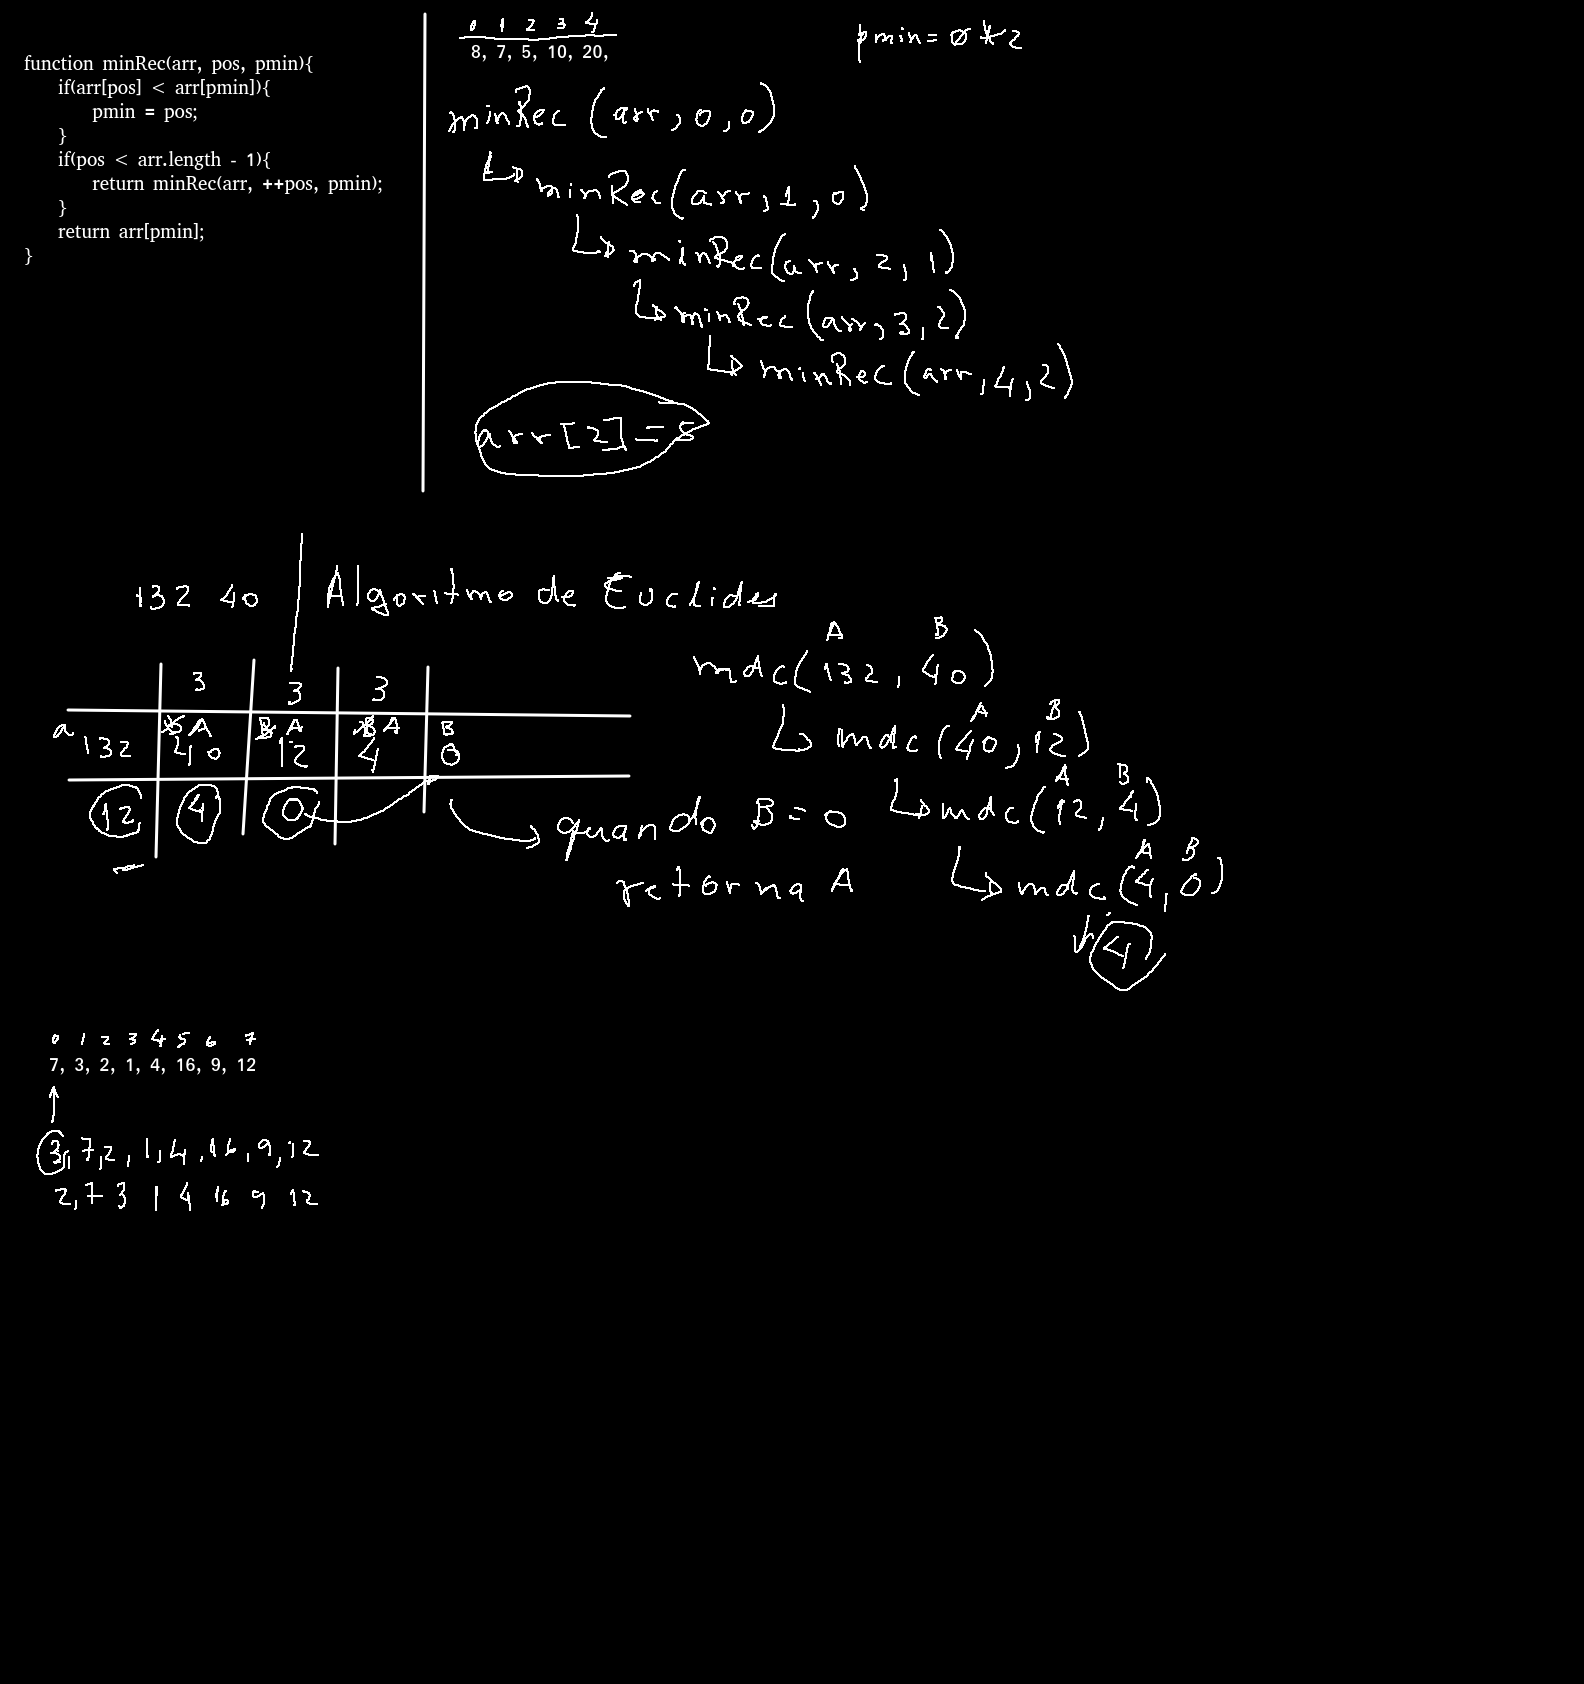 function minRec(arr, pos, pmin){
if(arr[pos] < arr[pmin]){
pmin = pos;
}
if(pos < arr.length - 1){
return minRec(arr, ++pos, pmin);
}
return arr[pmin];
}
0 1 2 3 4
8, 7, 5, 10, 20,
pmin = 0 1 2
minRec (arr, 0, 0)
minRec(arr, 1, 0)
minRec(arr, 2, 1)
minRec(arr, 3, 2)
minRec(arr, 4, 2)
arr[2] = 5
132 40
Algoritmo de Euclides
3 3 3
a B A B A B A B
132 40 12 4 0
12 4 0
quando B = 0
retorna A
A B
mdc(132, 40)
A B
mdc(40, 12)
A B
mdc(12, 4)
A B
mdc(4, 0)
4
0 1 2 3 4 5 6 7
7, 3, 2, 1, 4, 16, 9, 12
3, 7, 2, 1, 4, 16, 9, 12
2, 7 3 1 4 16 9 12